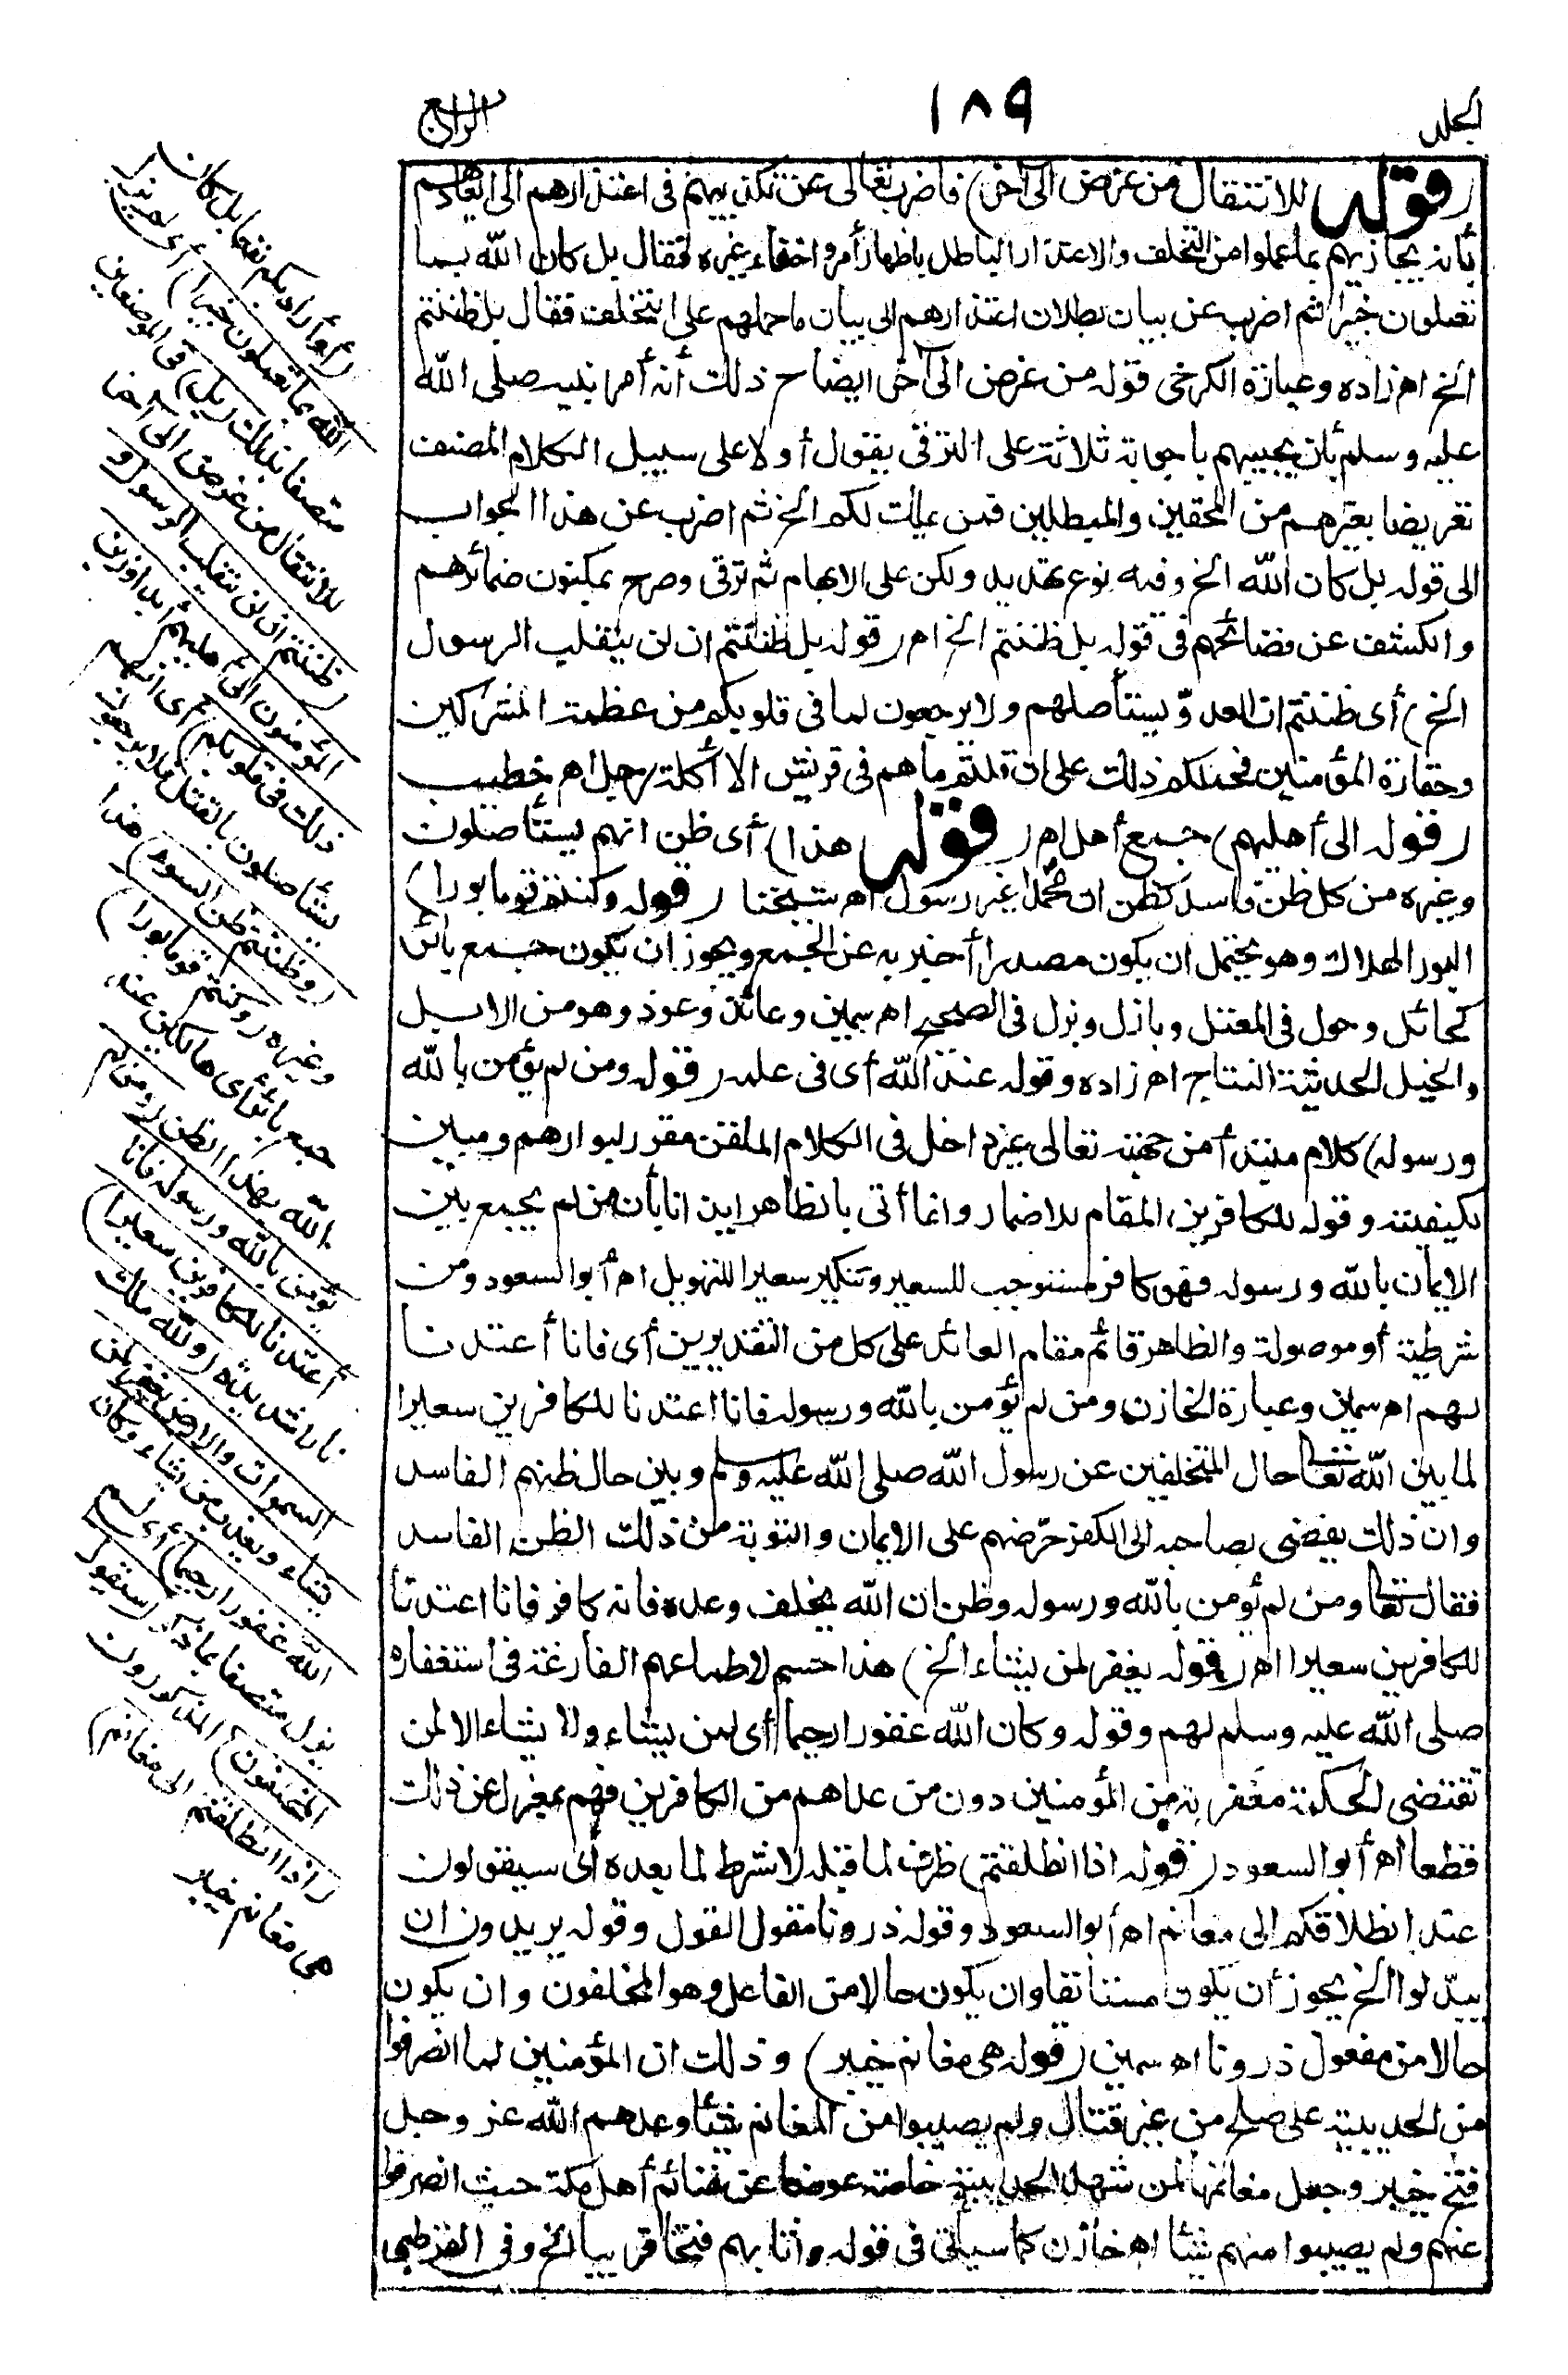 الجلد
١٨٩
الرابع
(قوله للانتقال من غرض الى آخر) فاضرب تعالى عن تكذيبهم فى اعتذارهم الى ايعادهم
بأنه يجازيهم بما عملوا من التخلف والاعتذار الباطل باظهار أمر واخفاء غيره فقال بل كان الله بما
تعملون خبيرا ثم اضرب عن بيان بطلان اعتذارهم الى بيان ما حملهم على التخلف فقال بل ظننتم
الخ اه زاده وعبارة الكرخى قوله من غرض الى آخر ايضاح ذلك أنه أمر نبيه صلى الله
عليه وسلم بأن يجيبهم بأجوبة ثلاثة على الترقى يقول أولا على سبيل الكلام المنصف
تعريضا بغيرهم من المحقين والمبطلين فمن يملك لكم الخ ثم اضرب عن هذا الجواب
الى قوله بل كان الله الخ وفيه نوع تهديد ولكن على الابهام ثم ترقى وصرح بمكنون ضمائرهم
والكشف عن فضائحهم فى قوله بل ظننتم الخ اه (قوله بل ظننتم ان لن ينقلب الرسول
الخ) أى ظننتم ان العدوّ يستأصلهم ولا يرجعون لما فى قلوبكم من عظمة المشركين
وحقارة المؤمنين فحملكم ذلك على ان قلتم ما هم فى قريش الا أكلة رجل اه خطيب
(قوله الى أهليهم) جمع أهل اه (قوله هذا) أى ظن انهم يستأصلون
وغيره من كل ظن فاسد كظن ان محمدا غير رسول اه شيخنا (قوله وكنتم قوما بورا)
البور الهلاك وهو يحتمل ان يكون مصدرا أخبر به عن الجمع ويجوز ان يكون جمع بائر
كحائل وحول فى المعتل وبازل وبزل فى الصحيح اه سمين وعائذ وعوذ وهو من الابل
والخيل الحديثة النتاج اه زاده وقوله عند الله أى فى علمه (قوله ومن لم يؤمن بالله
ورسوله) كلام مبتدأ من جهته تعالى غير داخل فى الكلام الملقن مقرر لبوارهم ومبين
لكيفيته وقوله للكافرين المقام للاضمار وانما أتى بالظاهر ايذانا بأن من لم يجمع بين
الايمان بالله ورسوله فهو كافر مستوجب للسعير وتنكير سعيرا للتهويل اه أبو السعود ومن
شرطية أو موصولة والظاهر قائم مقام العائد على كل من التقديرين أى فانا أعتدنا
لهم اه سمين وعبارة الخازن ومن لم يؤمن بالله ورسوله فانا اعتدنا للكافرين سعيرا
لما بين الله تعالى حال المتخلفين عن رسول الله صلى الله عليه وسلم وبين حال ظنهم الفاسد
وان ذلك يفضى بصاحبه الى الكفر حرّضهم على الايمان والتوبة من ذلك الظن الفاسد
فقال تعالى ومن لم يؤمن بالله ورسوله وظن ان الله يخلف وعده فانه كافر فانا اعتدنا
للكافرين سعيرا اه (قوله يغفر لمن يشاء الخ) هذا حسم لاطماعهم الفارغة فى استغفاره
صلى الله عليه وسلم لهم وقوله وكان الله غفورا رحيما أى لمن يشاء ولا يشاء الا لمن
تقتضى الحكمة مغفرته من المؤمنين دون من عداهم من الكافرين فهم بمعزل عن ذلك
قطعا اه أبو السعود (قوله اذا انطلقتم) ظرف لما قبله لا شرط لما بعده أى سيقولون
عند انطلاقكم الى مغانم اه أبو السعود وقوله ذرونا مقول القول وقوله يريدون ان
يبدّلوا الخ يجوز أن يكون مستأنفا وان يكون حالا من الفاعل وهو المخلفون وان يكون
حالا من مفعول ذرونا اه سمين (قوله هى مغانم خيبر) وذلك ان المؤمنين لما انصرفوا
من الحديبية على صلح من غير قتال ولم يصيبوا من المغانم شيئا وعدهم الله عز وجل
فتح خيبر وجعل مغانمها لمن شهد الحديبية خاصة عوضا عن غنائم أهل مكة حيث انصرفوا
عنهم ولم يصيبوا منهم شيئا اه خازن كما سيأتى فى قوله وأثابهم فتحا قريبا الخ وفى القرطبى
(أو أراد بكم نفعا بل كان
الله بما تعملون خبيرا) أى لم يزل
متصفا بذلك (بل) فى الموضعين
للانتقال من غرض الى آخر
(ظننتم ان لن ينقلب الرسول و
المؤمنون الى أهليهم أبدا وزين
ذلك فى قلوبكم) أى انهم
يستأصلون بالقتل فلا يرجعون
(وظننتم ظن السوء) هذا
وغيره (وكنتم قوما بورا)
جمع بائر أى هالكين عند
الله بهذا الظن (ومن لم
يؤمن بالله ورسوله فانا
أعتدنا للكافرين سعيرا)
نارا شديدة (ولله ملك
السموات والارض يغفر لمن
يشاء ويعذب من يشاء وكان
الله غفورا رحيما) أى لم
يزل متصفا بما ذكر (سيقول
المخلفون) المذكورون
(اذا انطلقتم الى مغانم)
هى مغانم خيبر